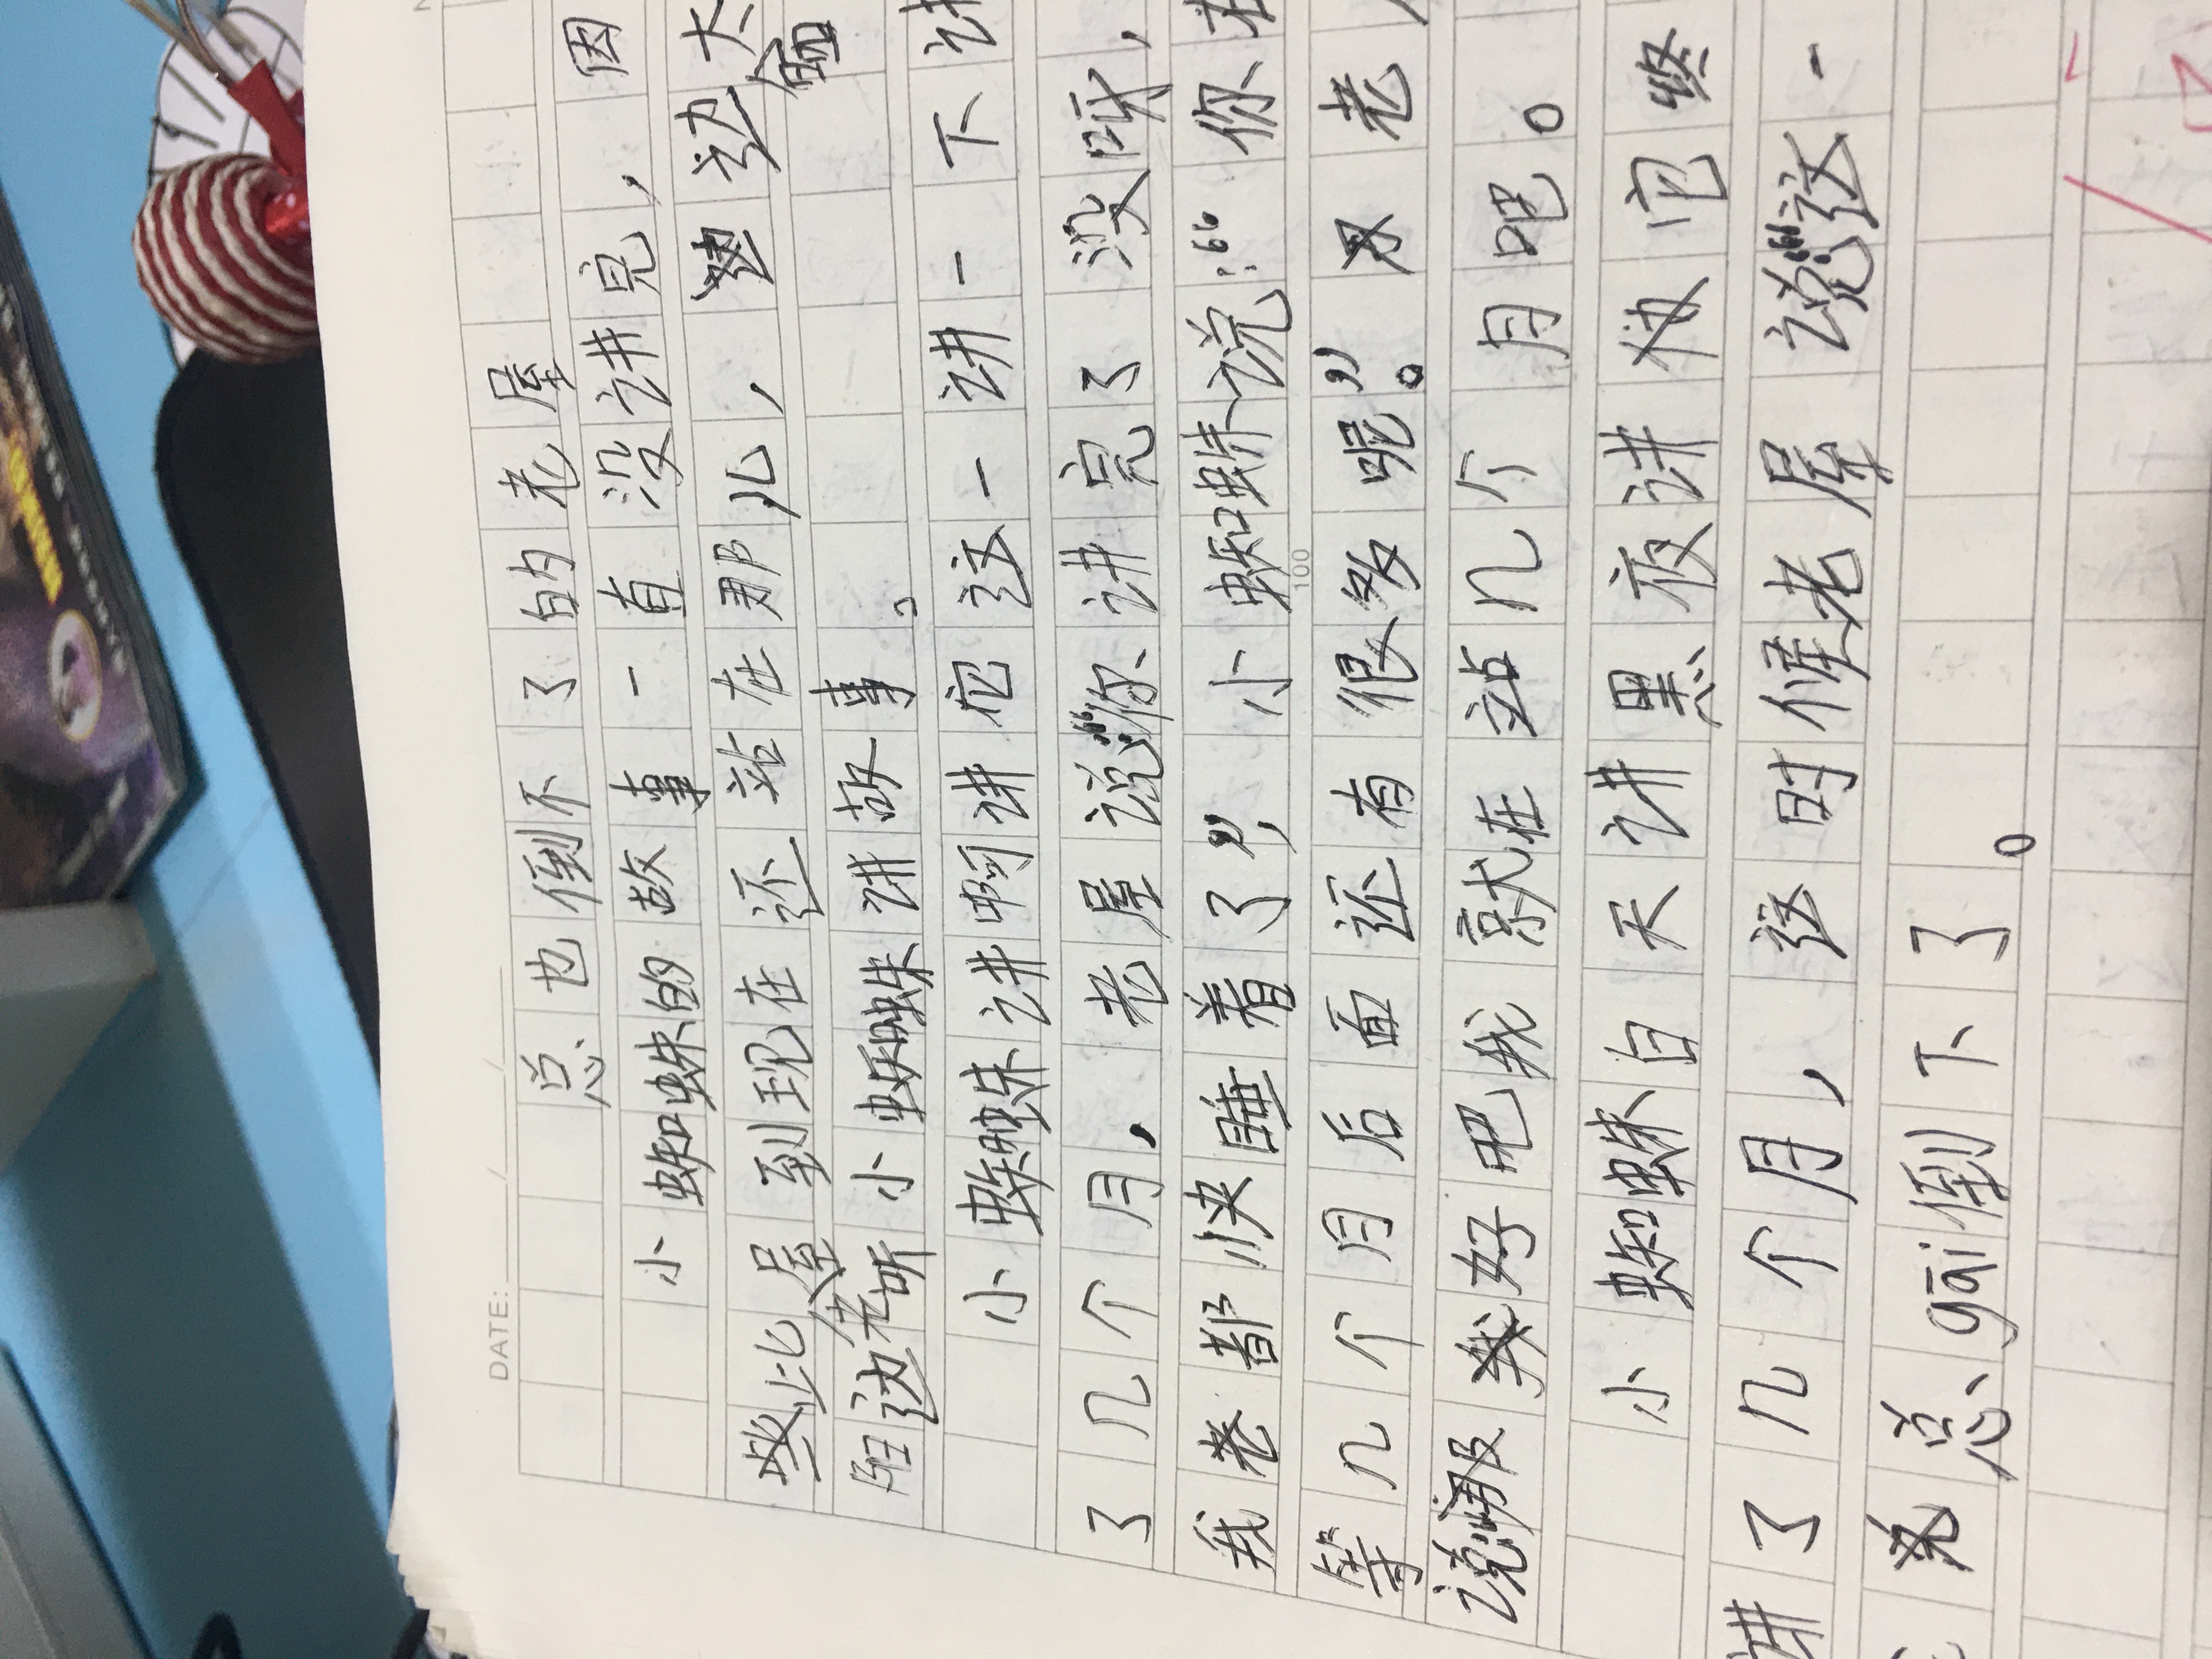 DATE:
总也倒不了的老屋
小蜘蛛的故事一直没讲完,因
此老屋到现在还站在那儿,边晒太
阳边听小蜘蛛讲故事。
小蜘蛛讲啊讲它这一讲一下讲
了几个月,老屋说:“你讲完了没哦,
我老都快睡着了”,小蜘蛛说:“你
100
等几个月后面还有很多呢”。老
说:“那好吧我就在站几个月吧。
小蜘蛛白天讲黑夜讲它终
讲了几个月,这时候老屋说:“这一
总gāi倒下了。